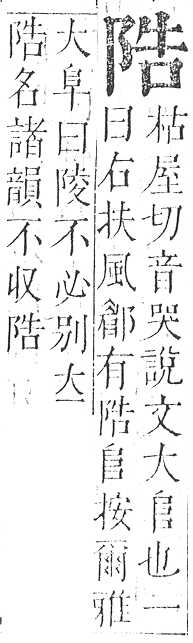 𨹟
枯屋切音哭說文大𨸏也一
曰右扶風郿有𨹟𨸏按爾雅
大阜曰陵不必別立
𨹟名諸韻不収𨹟